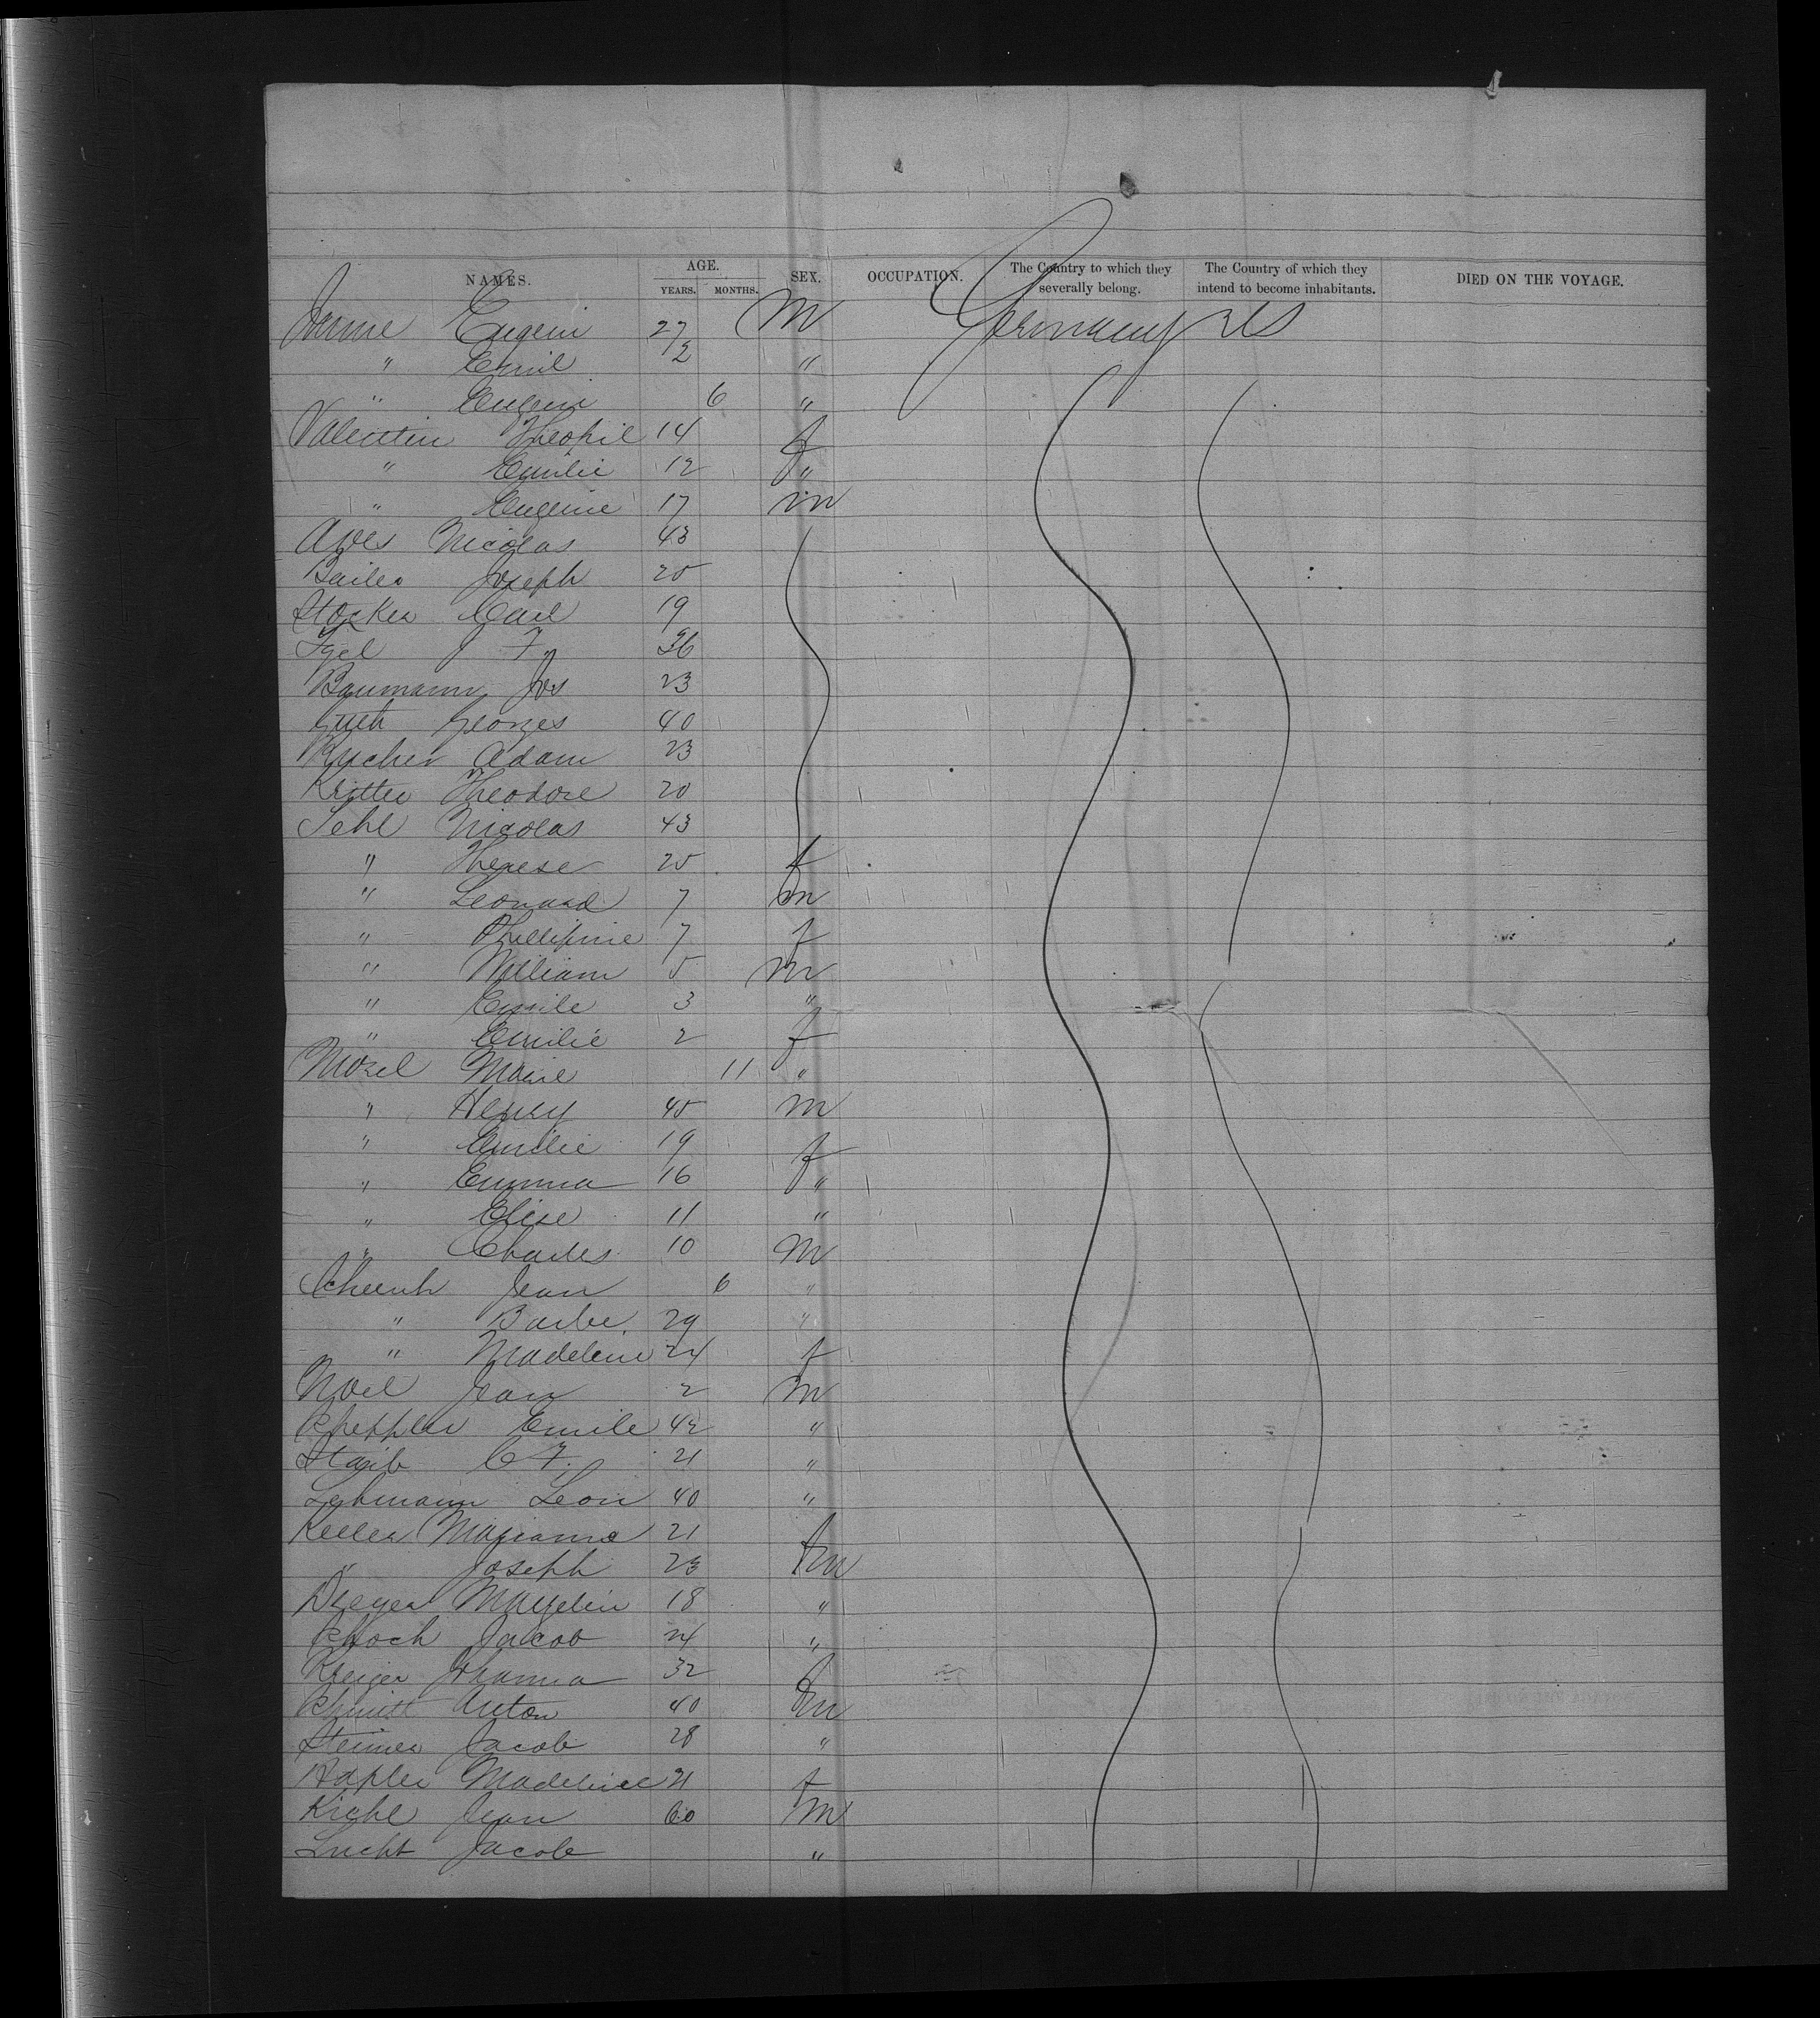 NAMES. AGE. YEARS. MONTHS. SEX. OCCUPATION. The Country to which they severally belong. The Country of which they intend to become inhabitants. DIED ON THE VOYAGE.
Eugein 27 M Germany US
" Emil 2 "
" Eugein 6 "
Valentin Theophil 14 f
" Emilie 12 "
" Eugene 17 m
Nicolas 43
Bailer Joseph 25
Stocker Carl 19
J F 36
Baumann Jos 23
Guth Georges 40
Adam 23
Kritter Theodore 20
Sehl Nicolas 43
" Therese 25 f
" Leonard 7 m
" Phillipine 7 f
" William 5 m
" Emile 3 "
" Emilie 2 f
Morel Marie 11 "
" Henry 45 m
" Emilie 19 f
" Emma 16 "
" Elise 11 "
" Charles 10 m
Jean 6 "
" Barbe 29 "
" Madeleine 24 f
Noel Jean 2 m
Emile 42 "
Staib C F. 21 "
Lehmann Leon 40 "
Keller Marianne 21 f
" Joseph 23 m
Dreyer 18 "
Jacob 24 "
Johanna 32 f
Schmitt Anton 40 m
Steiner Jacob 28 "
Madeleine 21 f
Jean 60 m
Lucht Jacob "